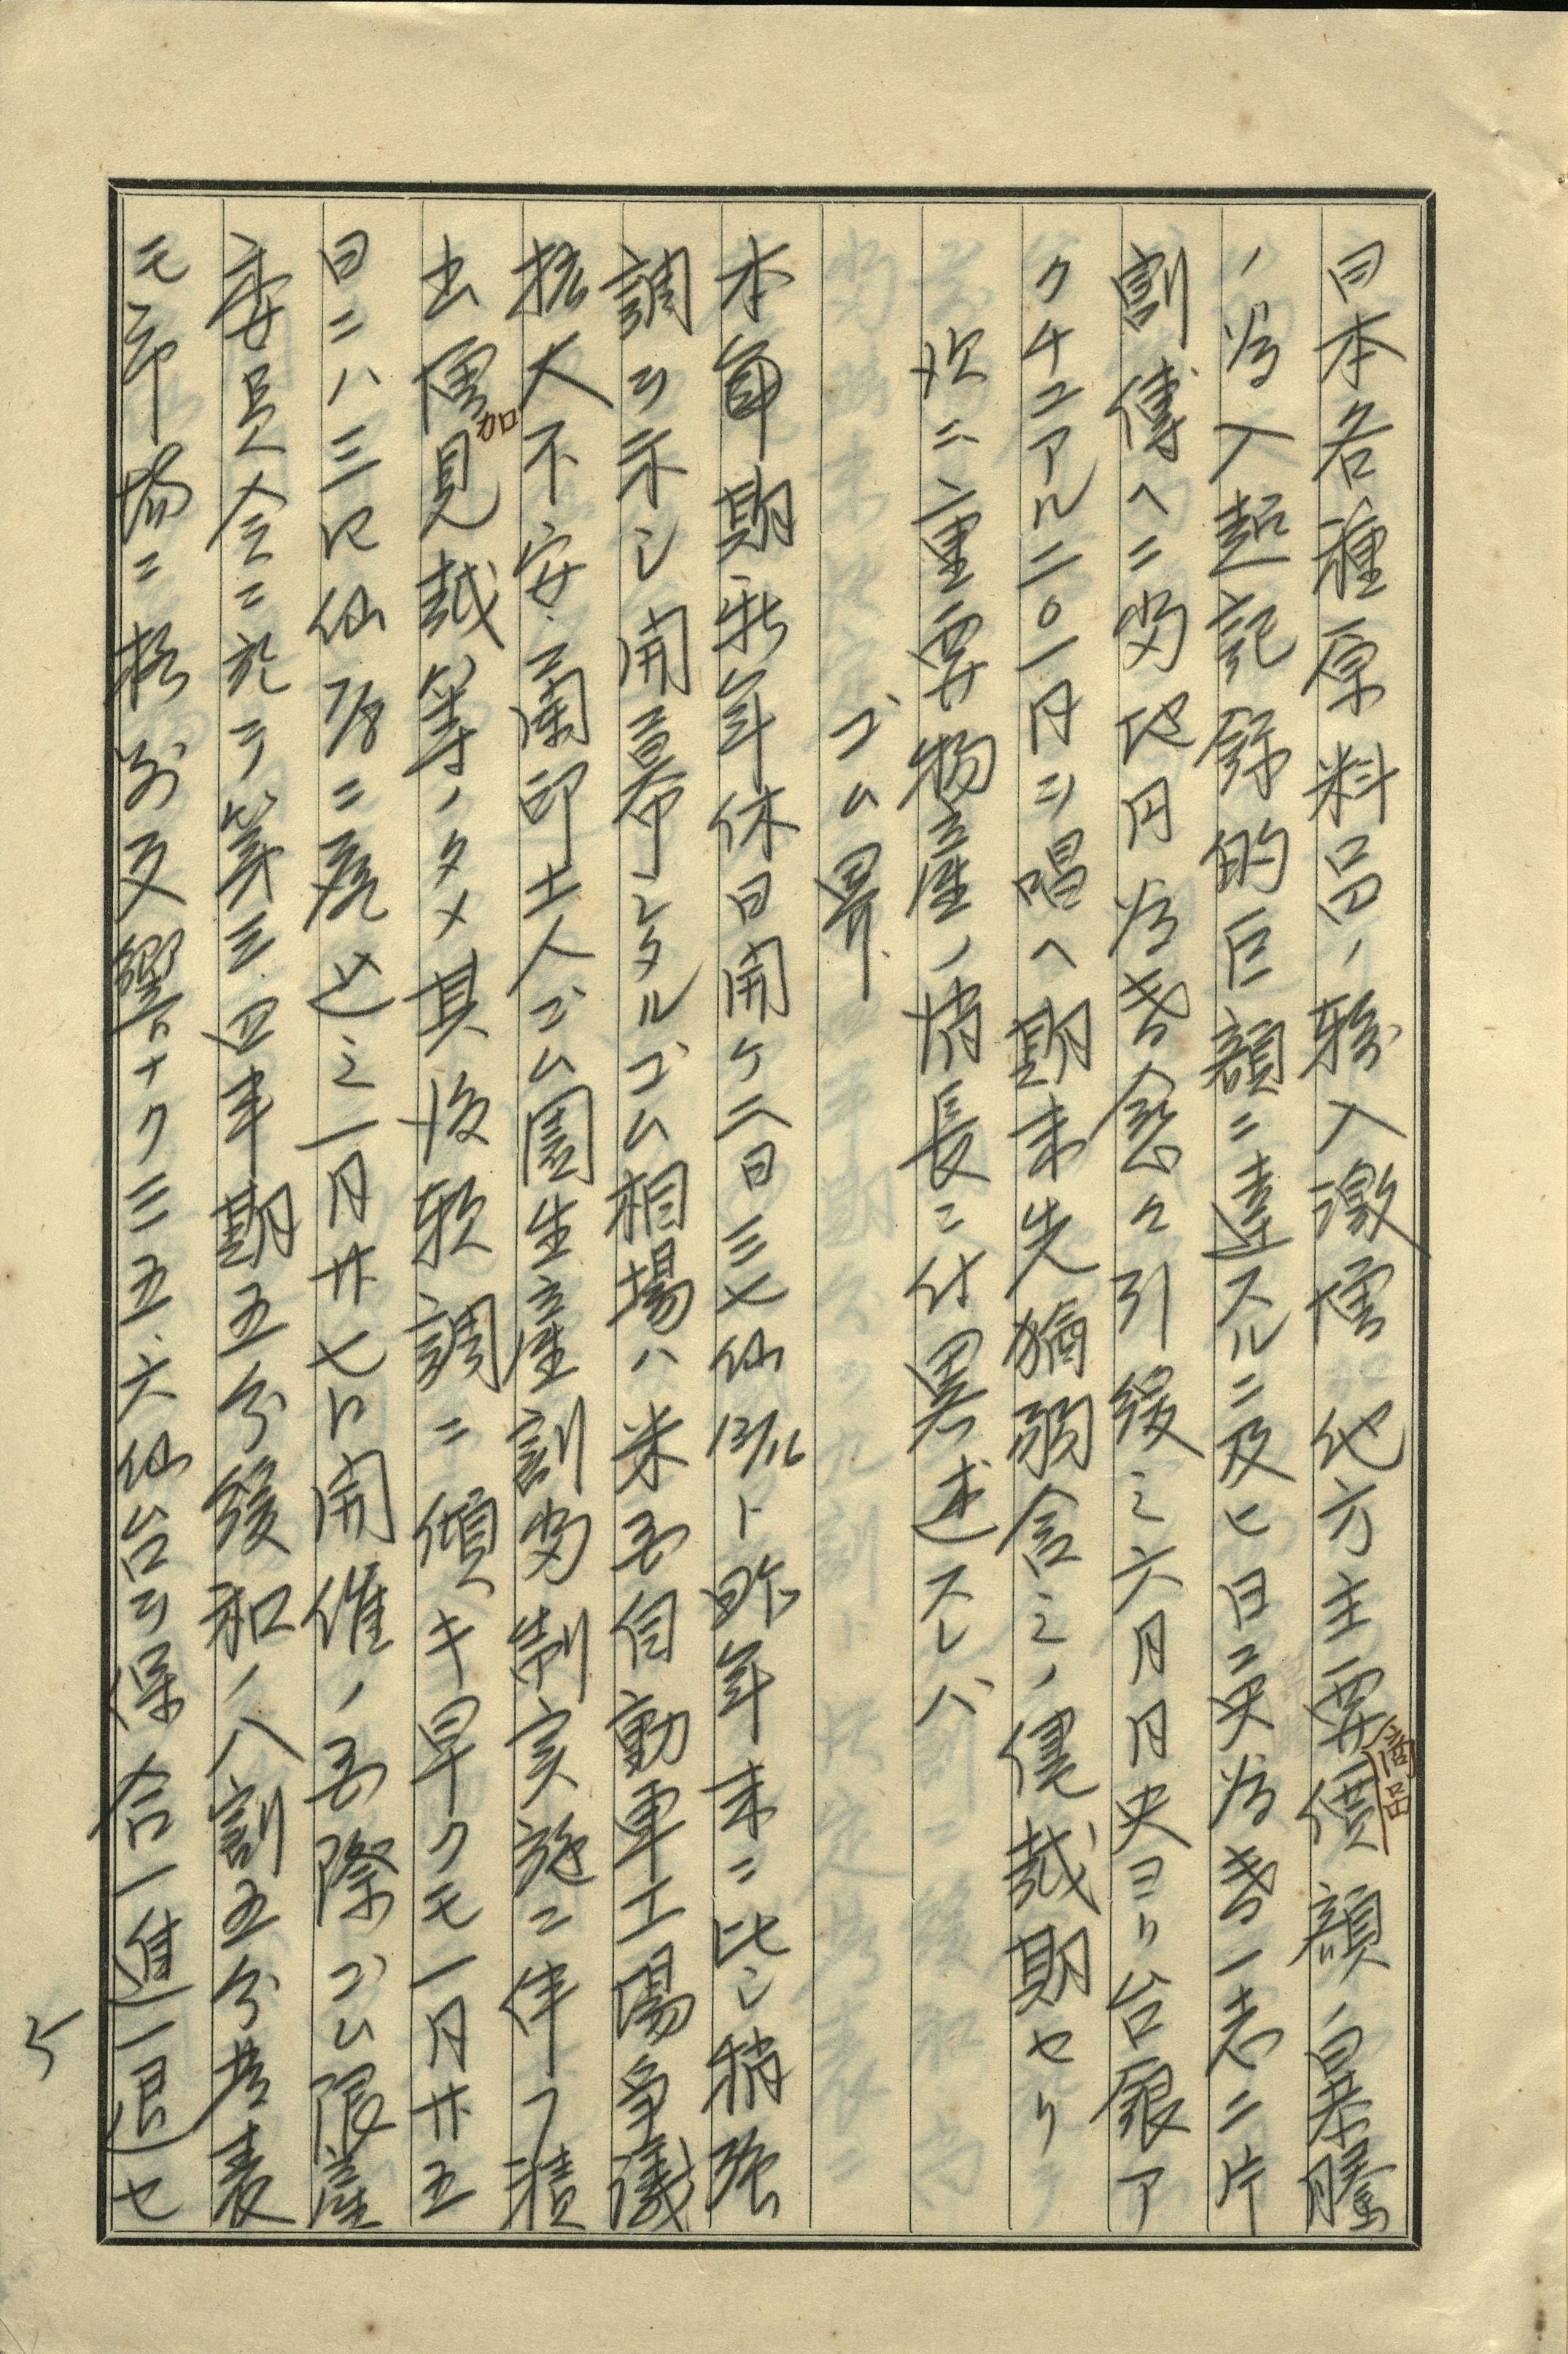 日本各種原料品ノ輸入激増他方主要商品價額ノ暴騰
ノ為入超記録的巨額ニ達スルニ及ヒ日英為替一志二片
割停ヘニ対他円為替念々引緩ミ六月月央ヨリ台銀ア
ク千ユアル二〇一円ヲ唱ヘ期末先猶弱含ミノ儘越期セリ
次ニ重要物産ノ消長ニ付畧述スレバ
ゴム界
本年期新年休日開ケ二日三七仙13/16ト昨年末ニ比シ稍強
調ヲ示シ開幕シタルゴム相場ハ米国自動車工場争議
拡大不安、蘭印土人ゴム園生産割当制実施ニ伴フ積
出増加見越等ノタメ其後軟調ニ傾キ早クモ一月廿五
日ニハ三四仙7/8ニ落込ミ一月廿七日開催ノ国際ゴム限産
委員会ニ於テ第三、四半期五分緩和ノ八割五分発表
モ市場ニ格別反響ナク三五、六仙台ヲ保合一進一退セ
5